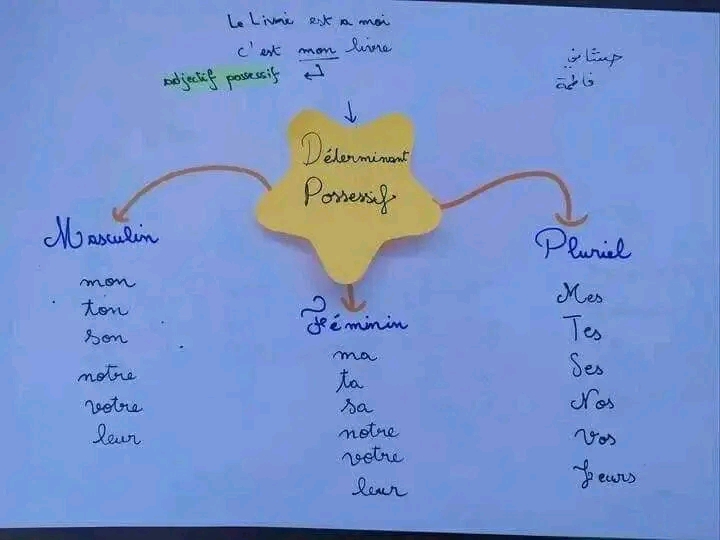 Le Livre est a moi
c'est mon livre
adjectif possessif
فاطمة
Déterminant
Possessif
Masculin
mon
ton
son
notre
votre
leur
Féminin
ma
ta
sa
notre
votre
leur
Pluriel
Mes
Tes
Ses
Nos
Vos
Leurs